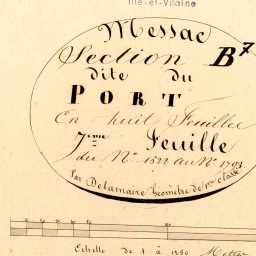 Ille-et-Vilaine
Messac
Section B7
dite du
PORT
En huit Feuilles
7eme Feuille
du No 1522 au No 1793
Par Delamaire Géomètre de 1ere classe
Echelle de 1 à 1250 Metres